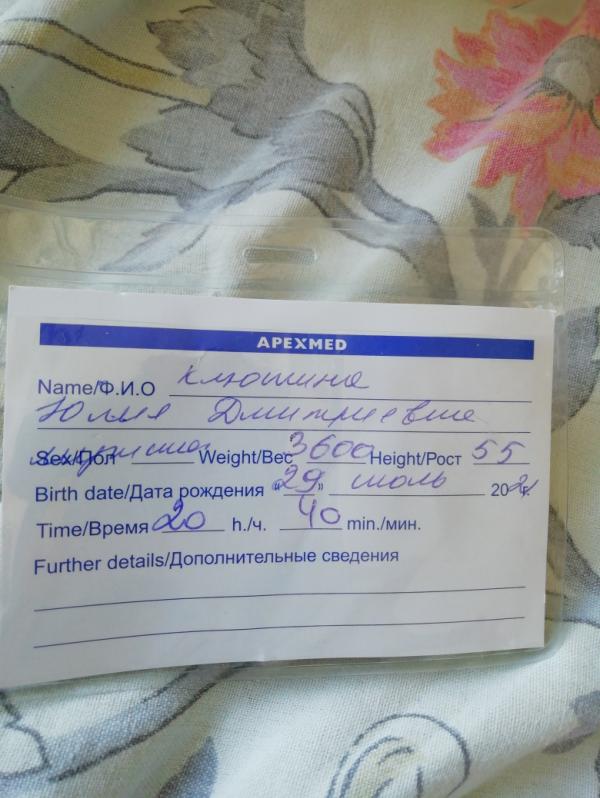 APEXMED
Name/Ф.И.О Клюшина
Юлия Дмитриевна
Sex/Пол Weight/Вес 3600 Height/Рост 55
Birth date/Дата рождения «29» июль 202 г.
Time/Время 20 h./ч. 40 min./мин.
Further details/Дополнительные сведения